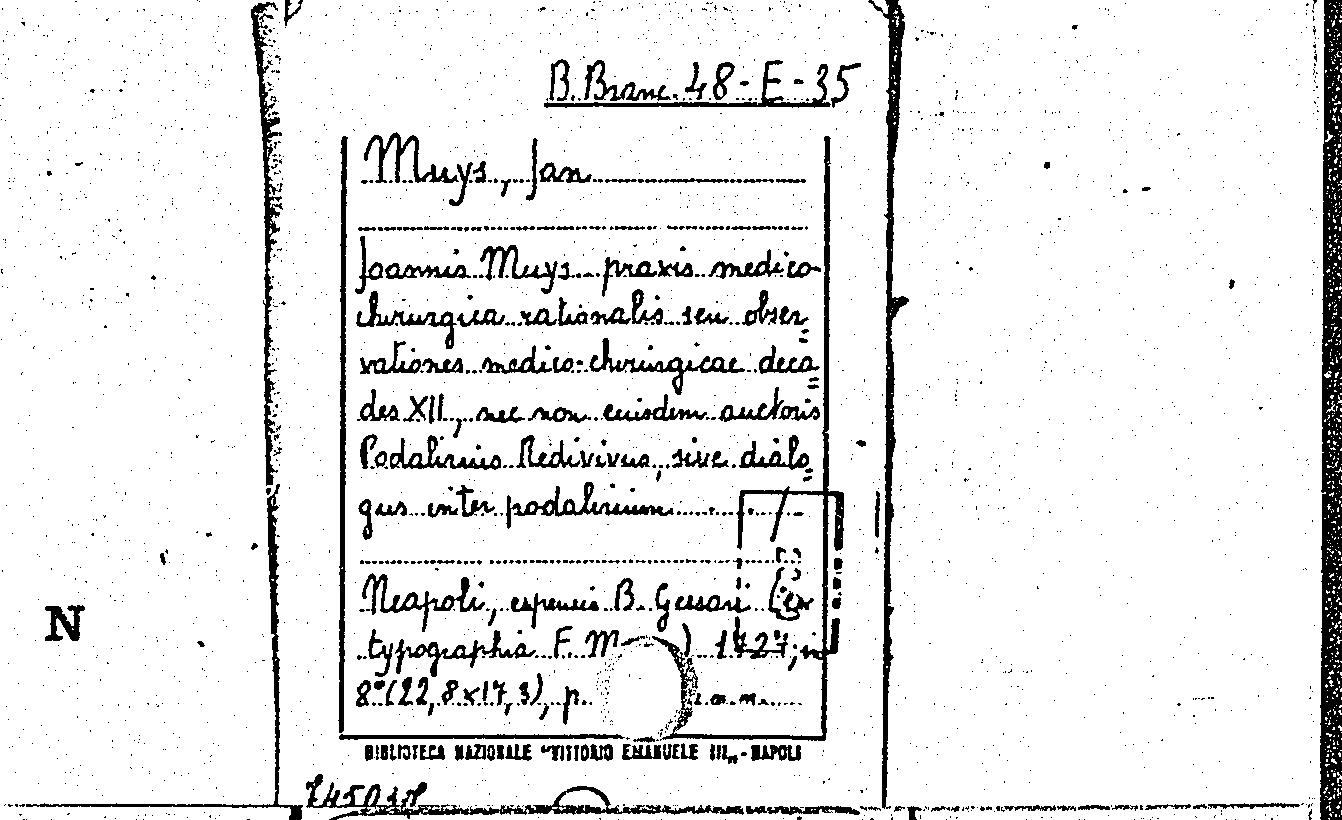 B.Branc. 48-E-35
Muys, Jan
Joannis Muys praxis medico-
chirurgica rationalis seu obser
vationes medico-chirurgicae deca
des XII, nec non euisdem auctoris
Podalirius Redivivus, sive dialo
gus inter podalirium
Neapoli, expensis B. Gessari (ex
typographia F. M ) 1727; in
8°(22,8x17,3), p. .a.n.
BIBLIOTECA NAZIONALE "VITTORIO EMANUELE III„-NAPOLI
N